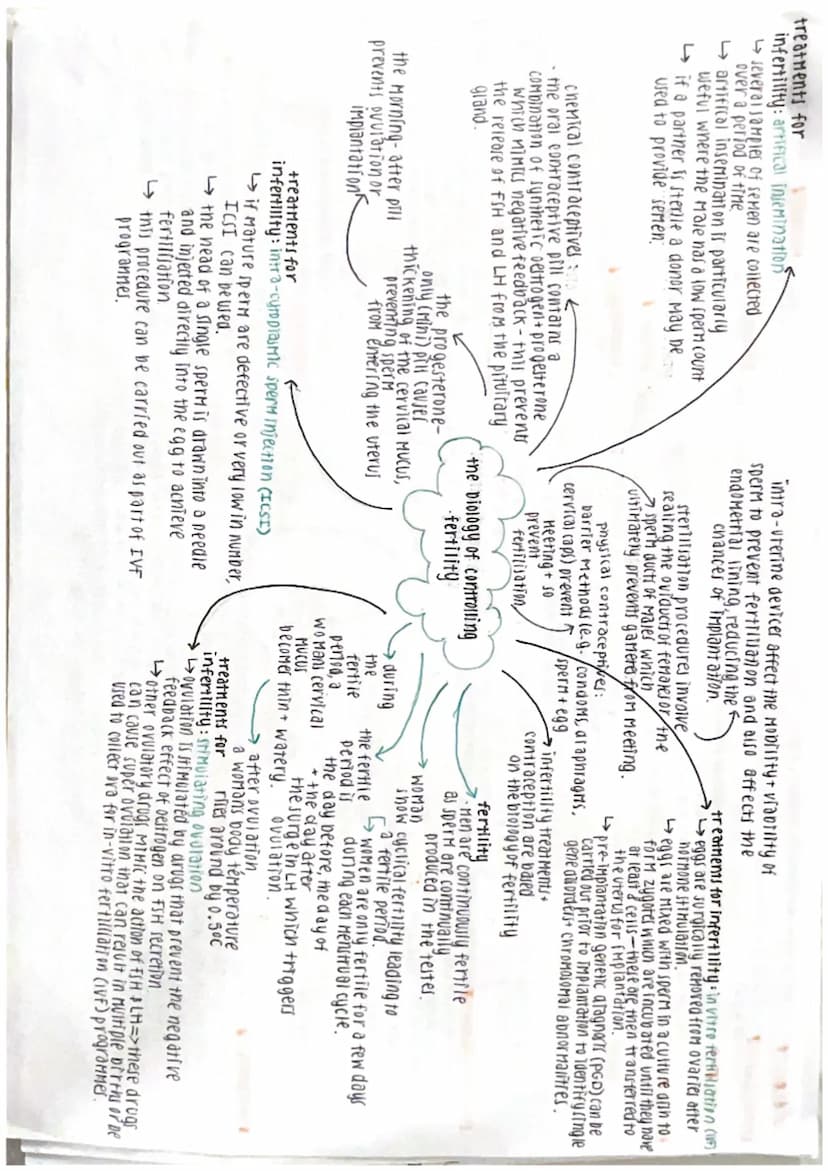 the biology of controlling
fertility
treatments for
infertility: artifical insemination
↳ several samples of semen are collected
over a period of time
↳ artifical insemination is particularly
useful where the male has a low sperm count
↳ if a partner is sterile a donor may be
used to provide semen.
chemical contraceptives:
· the oral contraceptive pill contains a
combination of synthetic oestrogen + progesterone
which mimics negative feedback - this prevents
the release of FSH and LH from the pituitary
gland.
the progesterone-
only (mini) pill causes
thickening of the cervical mucus,
preventing sperm
from entering the uterus
the morning-after pill
prevents ovulation or
implantation
treatments for
infertility: intra-cytoplasmic sperm injection (ICSI)
↳ if mature sperm are defective or very low in number,
ICSI can be used.
↳ the head of a single sperm is drawn into a needle
and injected directly into the egg to achieve
fertilisation
↳ this procedure can be carried out as part of IVF
programmes.
intra-uterine devices affect the mobility + viability of
sperm to prevent fertilisation and also affects the
endometrial lining, reducing the
chances of implantation.
sterilisation procedures involve
sealing the oviducts of females or the
sperm ducts of males which
ultimately prevents gametes from meeting.
physical contraceptives:
barrier methods (e.g. condoms, diaphragms,
cervical caps) prevent sperm + egg
meeting + so
prevent
fertilisation
treatments for infertility: in vitro fertilisation (IVF)
↳ eggs are surgically removed from ovaries after
hormone stimulation.
↳ eggs are mixed with sperm in a culture dish to
form zygotes which are incubated until they have
at least 8 cells - these are then transferred to
the uterus for implantation.
↳ pre-implantation genetic diagnosis (PGD) can be
carried out prior to implantation to identify single
gene disorders + chromosomal abnormalities.
infertility treatment +
contraception are based
on the biology of fertility
fertility
· men are continuously fertile
as sperm are continually
produced in the testes.
woman
show cyclical fertility leading to
a fertile period.
↳ women are only fertile for a few days
during each menstrual cycle.
the fertile
period is
the day before, the day of
+ the day after
the surge in LH which triggers
ovulation.
during
the
fertile
period, a
womans cervical
mucus
becomes thin + watery.
after ovulation
a womans body temperature
rises around by 0.5oC
treatments for
infertility: stimulating ovulation
↳ ovulation is stimulated by drugs that prevent the negative
feedback effect of oestrogen on FSH secretion
↳ other ovulatory drugs mimic the action of FSH + LH => these drugs
can cause super ovulation that can result in multiple births or be
used to collect ova for in-vitro fertilisation (IVF) programmes.